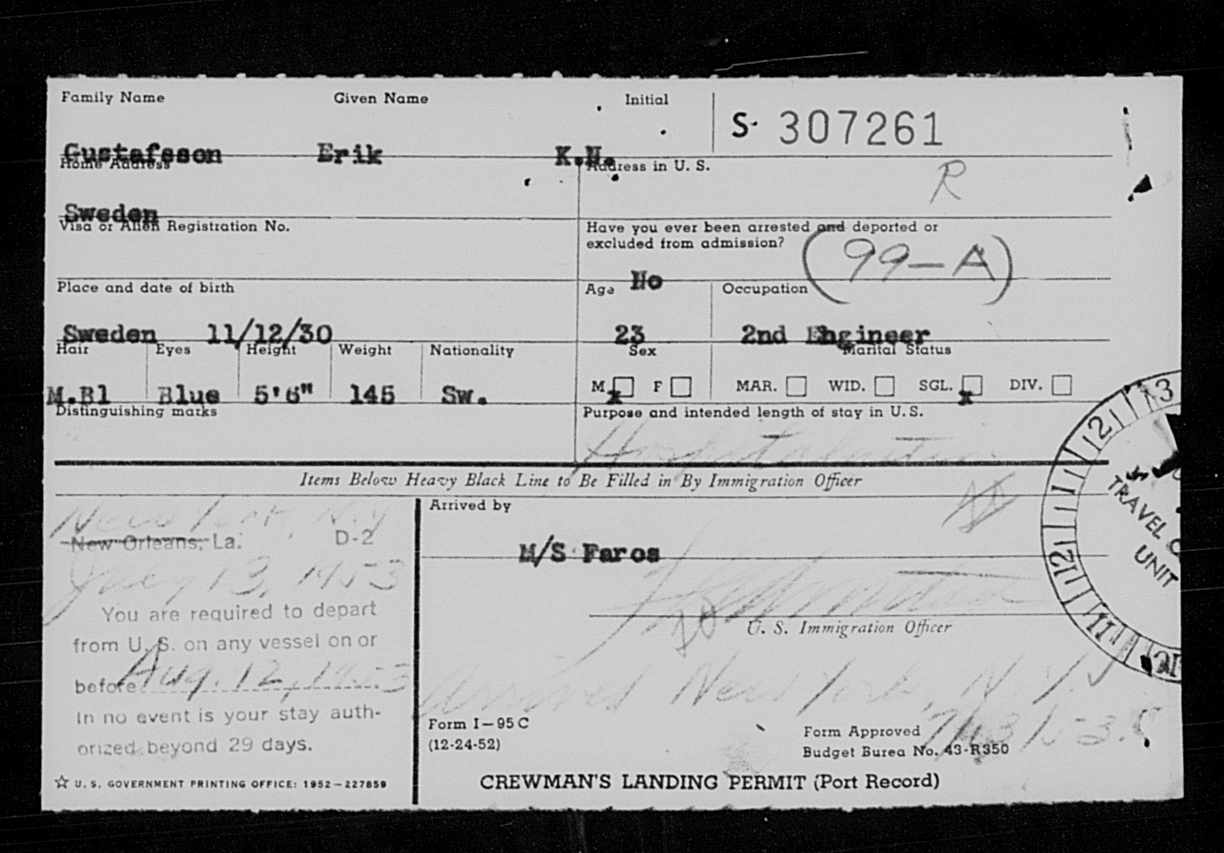 Family Name Given Name Initial S- 307261
Gustafsson Erik K.H.
Home Address Address in U. S. R
Sweden
Visa or Alien Registration No. Have you ever been arrested and deported or
excluded from admission?
No (99-A)
Place and date of birth Age Occupation
Sweden 11/12/30 23 2nd Engineer
Hair Eyes Height Weight Nationality Sex Marital Status
M.Bl Blue 5'6" 145 Sw. M x F MAR. WID. SGL. x DIV.
Distinguishing marks Purpose and intended length of stay in U. S.
Items Below Heavy Black Line to Be Filled in By Immigration Officer
New York, N.Y Arrived by
New Orleans, La. D-2
M/S Faros
July 13, 1953
You are required to depart
from U. S. on any vessel on or
before Aug. 12, 1953
In no event is your stay auth-
orized beyond 29 days.
U. S. Immigration Officer
Arrived New York, N.Y.
Form I-95 C
(12-24-52)
Form Approved
Budget Burea No. 43-R350
☆ U. S. GOVERNMENT PRINTING OFFICE: 1952-227859
CREWMAN'S LANDING PERMIT (Port Record)
TRAVEL
UNIT
11 12 1 2 3